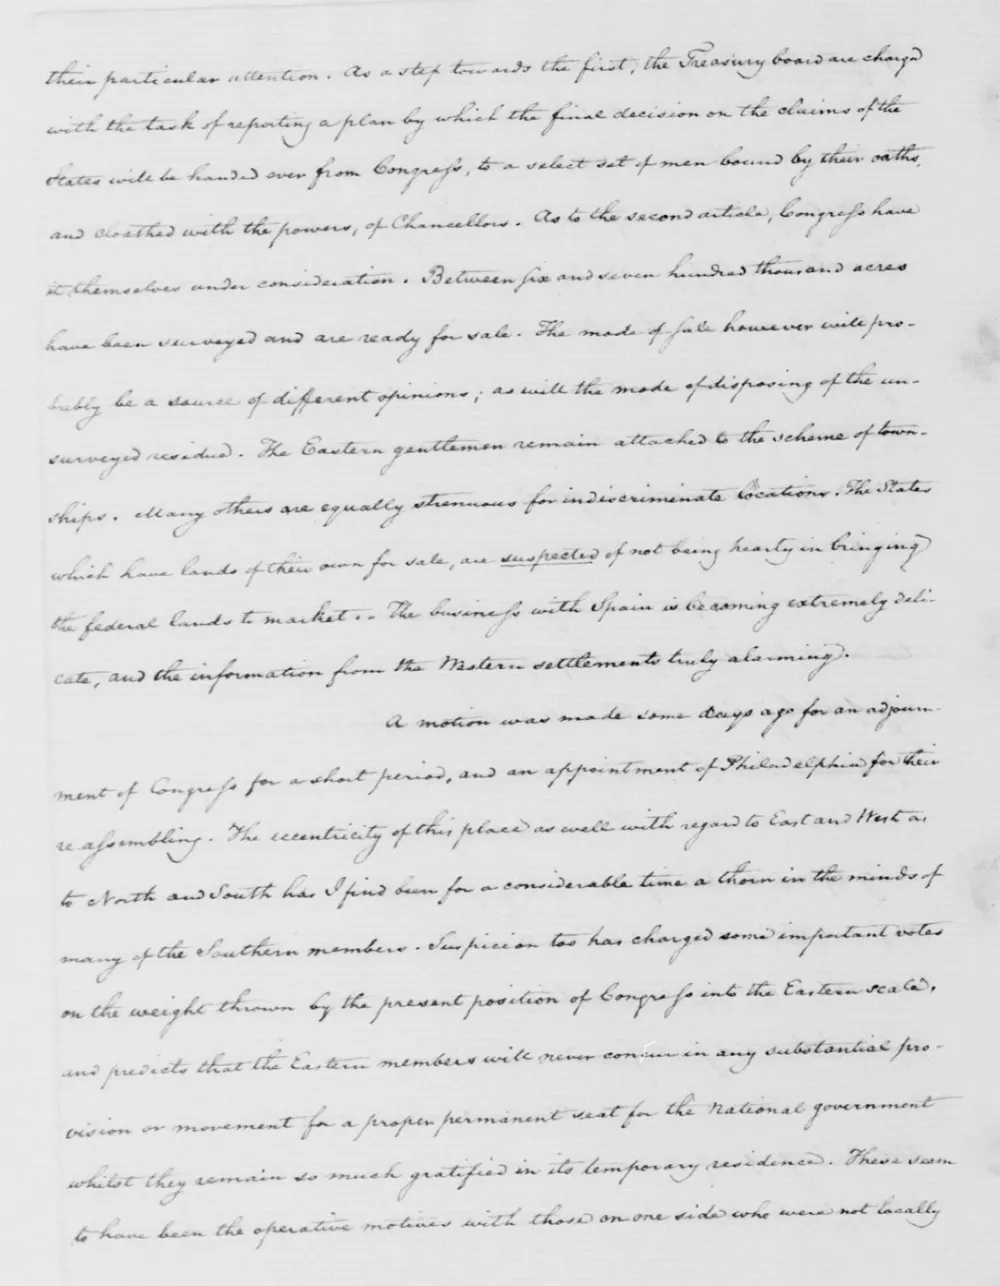 their particular attention. As a step towards the first, the Treasury board are charged
with the task of reporting a plan by which the final decision on the claims of the
States will be handed over from Congress, to a select set of men bound by their oaths,
and cloathed with the powers, of Chancellors. As to the second article, Congress have
it themselves under consideration. Between six and seven hundred thousand acres
have been surveyed and are ready for sale. The mode of sale however will pro-
bably be a source of different opinions; as will the mode of disposing of the un-
surveyed residue. The Eastern gentlemen remain attached to the scheme of town-
ships. Many others are equally strenuous for indiscriminate locations. The States
which have lands of their own for sale, are suspected of not being hearty in bringing
the federal lands to market.. The business with Spain is becoming extremely deli-
cate, and the information from the Western settlements truly alarming.
A motion was made some days ago for an adjourn-
ment of Congress for a short period, and an appointment of Philadelphia for their
re assembling. The eccentricity of this place as well with regard to East and West as
to North and South has I find been for a considerable time a thorn in the minds of
many of the Southern members. Suspicion too has charged some important votes
on the weight thrown by the present position of Congress into the Eastern scale,
and predicts that the Eastern members will never concur in any substantial pro-
vision or movement for a proper permanent seat for the National government
whilst they remain so much gratified in its temporary residence. These seem
to have been the operative motives with those on one side who were not locally